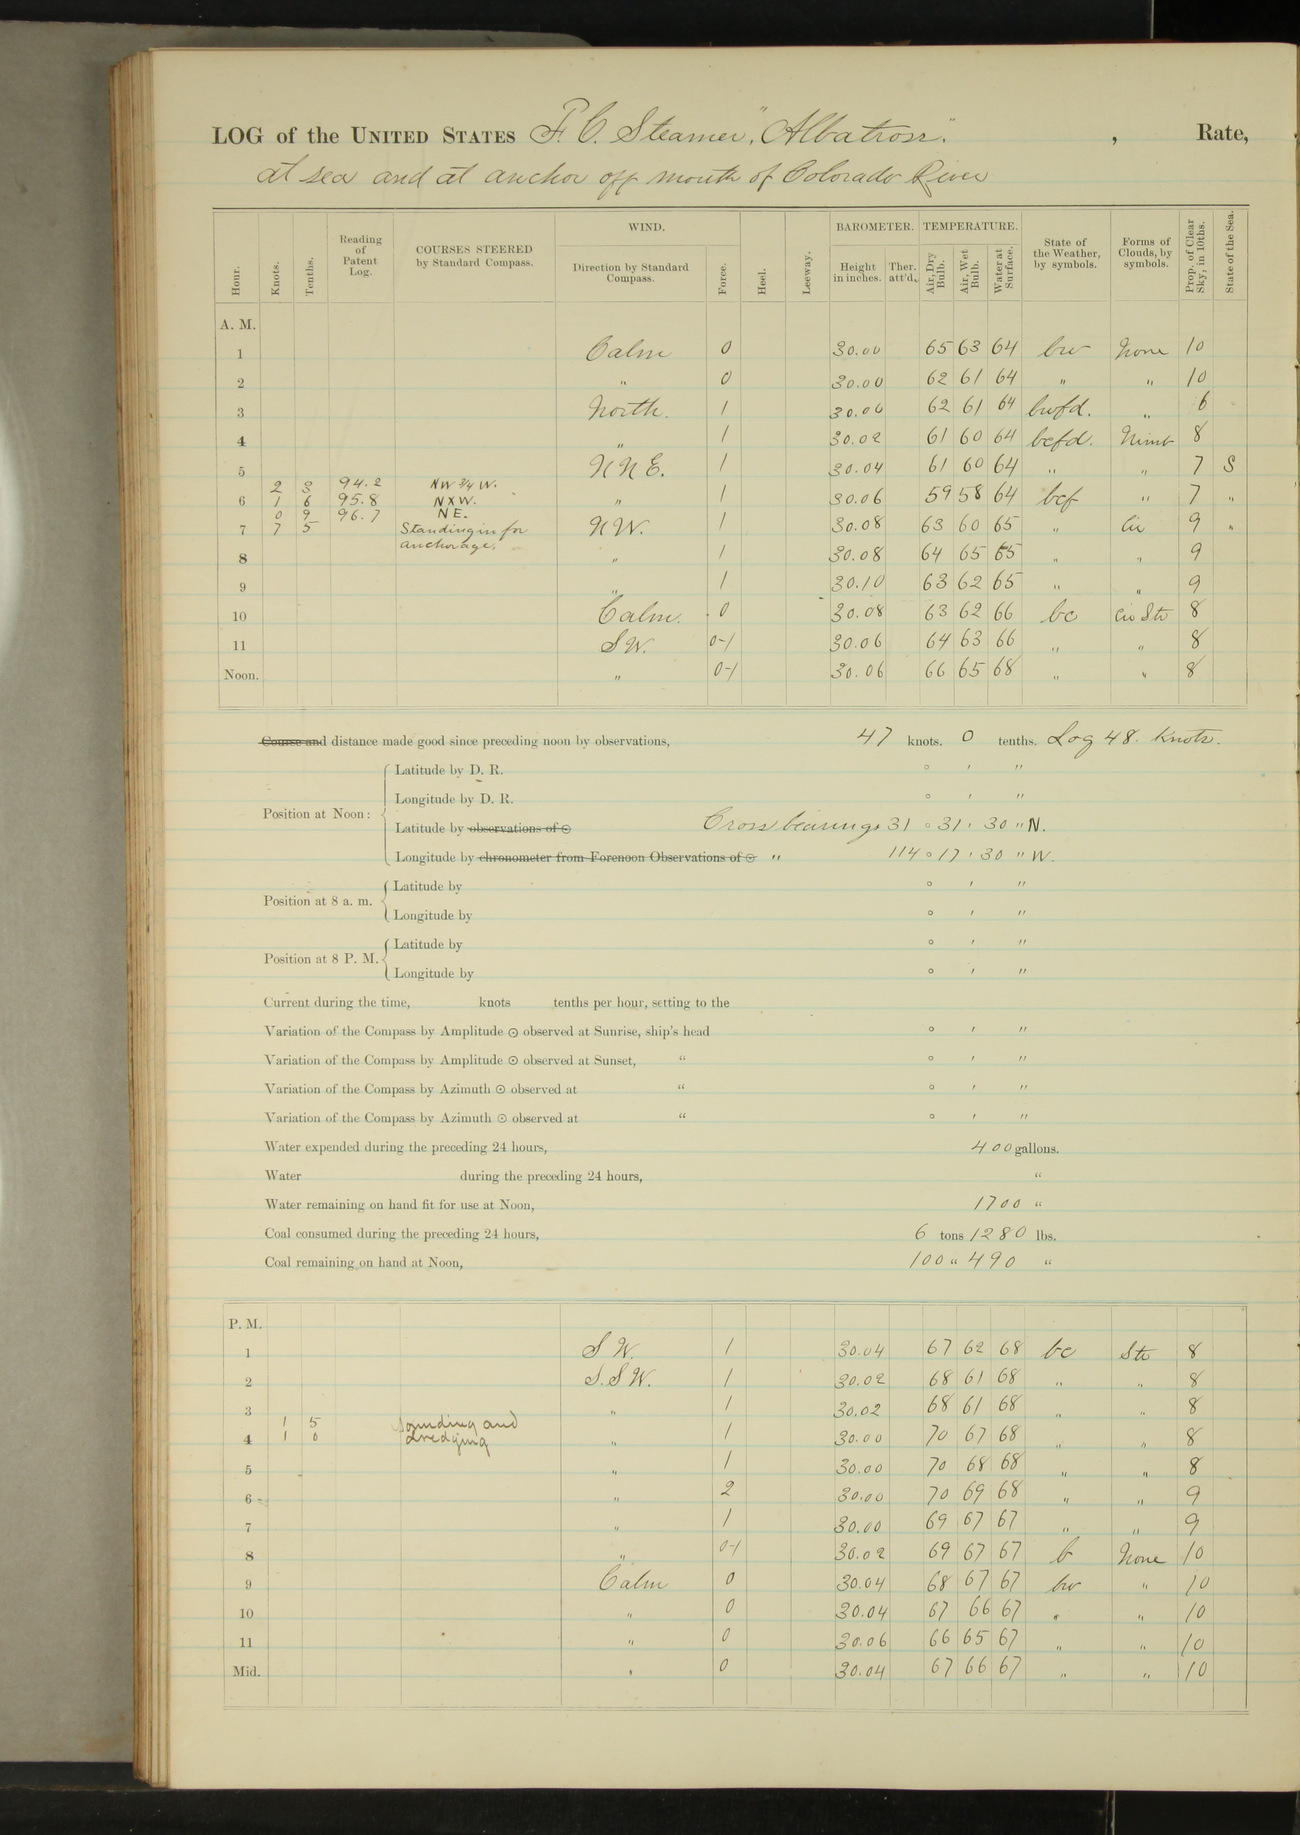 LOG of the UNITED STATES F. C. Steamer, "Albatross", Rate,
at sea and at anchor off mouth of Colorado River
Hour. Knots. Tenths. Reading of Patent Log. COURSES STEERED by Standard Compass. WIND. Direction by Standard Compass. Force. Heel. Leeway. BAROMETER. Height in inches. Ther. att'd. TEMPERATURE. Air, Dry Bulb. Air, Wet Bulb. Water at Surface. State of the Weather, by symbols. Forms of Clouds, by symbols. Prop. of Clear Sky, in 10ths. State of the Sea.
A. M.
1 Calm 0 30.00 65 63 64 bw None 10
2 " 0 30.00 62 61 64 " " 10
3 North. 1 30.00 62 61 64 bwfd. " 6
4 " 1 30.02 61 60 64 bcfd. Nimb 8
5 NNE. 1 30.04 61 60 64 " " 7 S
2 3 94.2 NW 3/4 W.
6 1 6 95.8 NXW. " 1 30.06 59 58 64 bcf " 7 "
0 9 96.7 NE.
7 7 5 Standing in for NW. 1 30.08 63 60 65 " Cir 9 "
anchorage.
8 " 1 30.08 64 65 65 " " 9
9 " 1 30.10 63 62 65 " " 9
10 Calm. 0 30.08 63 62 66 bc Cir Str 8
11 SW. 0-1 30.06 64 63 66 " " 8
Noon. " 0-1 30.06 66 65 68 " " 8
Course and distance made good since preceding noon by observations, 47 knots. 0 tenths. Log 48. knots.
Position at Noon:
Latitude by D. R. ° ′ ″
Longitude by D. R. ° ′ ″
Latitude by observations of ☉ Cross bearings 31 ° 31 ′ 30 ″ N.
Longitude by chronometer from Forenoon Observations of ☉ " 114 ° 17 ′ 30 ″ W.
Position at 8 a. m.
Latitude by ° ′ ″
Longitude by ° ′ ″
Position at 8 P. M.
Latitude by ° ′ ″
Longitude by ° ′ ″
Current during the time, knots tenths per hour, setting to the
Variation of the Compass by Amplitude ☉ observed at Sunrise, ship's head ° ′ ″
Variation of the Compass by Amplitude ☉ observed at Sunset, " ° ′ ″
Variation of the Compass by Azimuth ☉ observed at " ° ′ ″
Variation of the Compass by Azimuth ☉ observed at " ° ′ ″
Water expended during the preceding 24 hours, 400 gallons.
Water during the preceding 24 hours, "
Water remaining on hand fit for use at Noon, 1700 "
Coal consumed during the preceding 24 hours, 6 tons 1280 lbs.
Coal remaining on hand at Noon, 100 " 490 "
P. M.
1 S W. 1 30.04 67 62 68 bc Str 8
2 S.S W. 1 30.02 68 61 68 " " 8
3 " 1 30.02 68 61 68 " " 8
1 5 Sounding and
4 1 0 dredging " 1 30.00 70 67 68 " " 8
5 " 1 30.00 70 68 68 " " 8
6 " 2 30.00 70 69 68 " " 9
7 " 1 30.00 69 67 67 " " 9
8 " 0-1 30.02 69 67 67 b None 10
9 Calm 0 30.04 68 67 67 bw " 10
10 " 0 30.04 67 66 67 " " 10
11 " 0 30.06 66 65 67 " " 10
Mid. " 0 30.04 67 66 67 " " 10